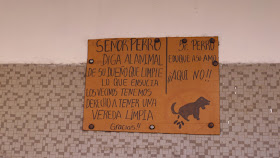 SEÑOR PERRO
DIGA AL ANIMAL
DE SU DUEÑO QUE LIMPIE
LO QUE ENSUCIA
LOS VECINOS TENEMOS
DERECHO A TENER UNA
VEREDA LIMPIA
GRACIAS!!
SR. PERRO
EDUQUE A SU AMO
¡¡AQUI NO!!